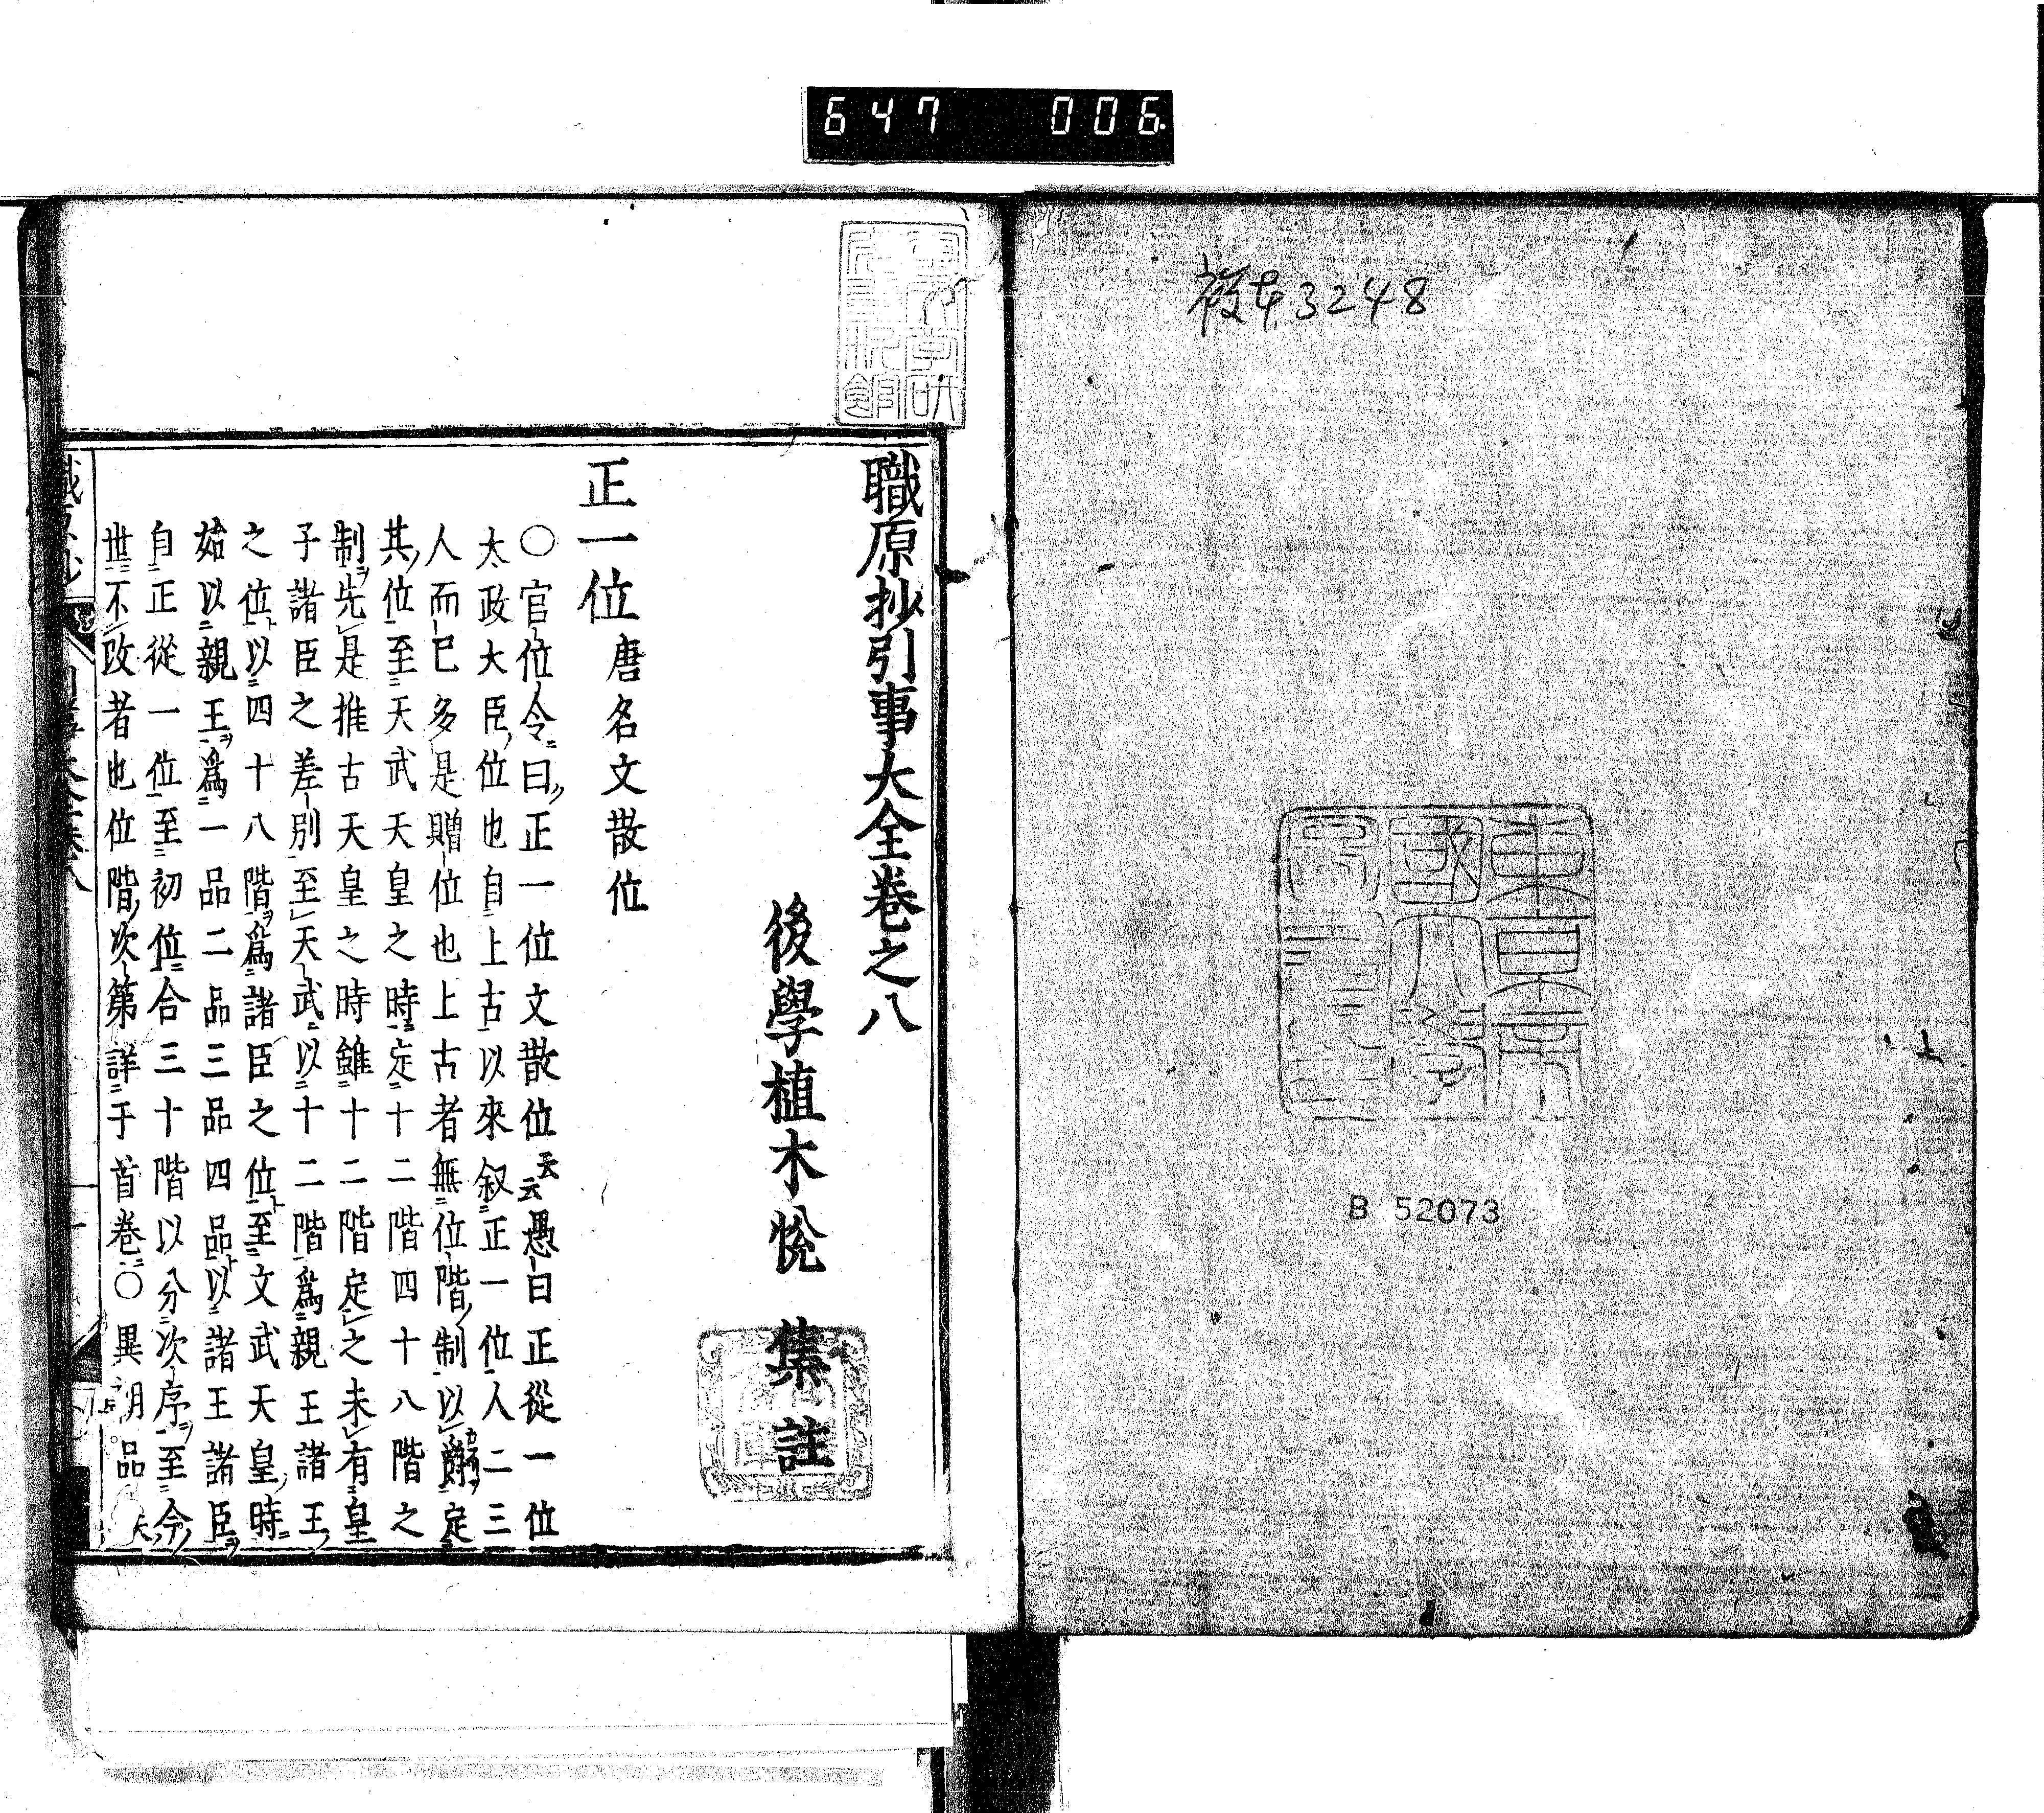 647 006
複本3248
東京帝
國大學
B 52073
職原抄引事大全卷之八
後學植木悅 集註
正一位 唐名文散位
○官位令曰正一位文散位云云愚曰正從一位
太政大臣位也自上古以來叙正一位人二三
人而已多是贈位也上古者無位階制以爵定
其位至天武天皇之時定十二階四十八階之
制先是推古天皇之時雖十二階定之未有皇
子諸臣之差別至天武以十二階爲親王諸王
之位以四十八階爲諸臣之位至文武天皇時
始以親王爲一品二品三品四品以諸王諸臣
自正從一位至初位合三十階以分次序至今
世不改者也位階次第詳于首卷○異朝品